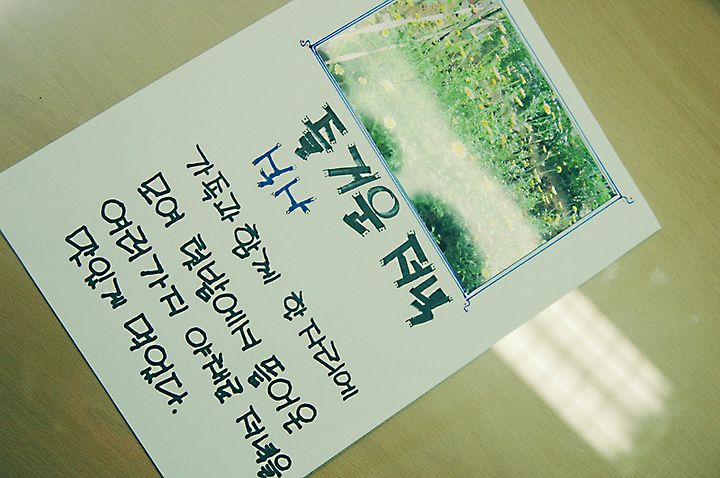 즐거운 저녁
가족과 함께 한 자리에
모여 텃밭에서 뜯어온
여러가지 야채로 저녁을
맛있게 먹었다.